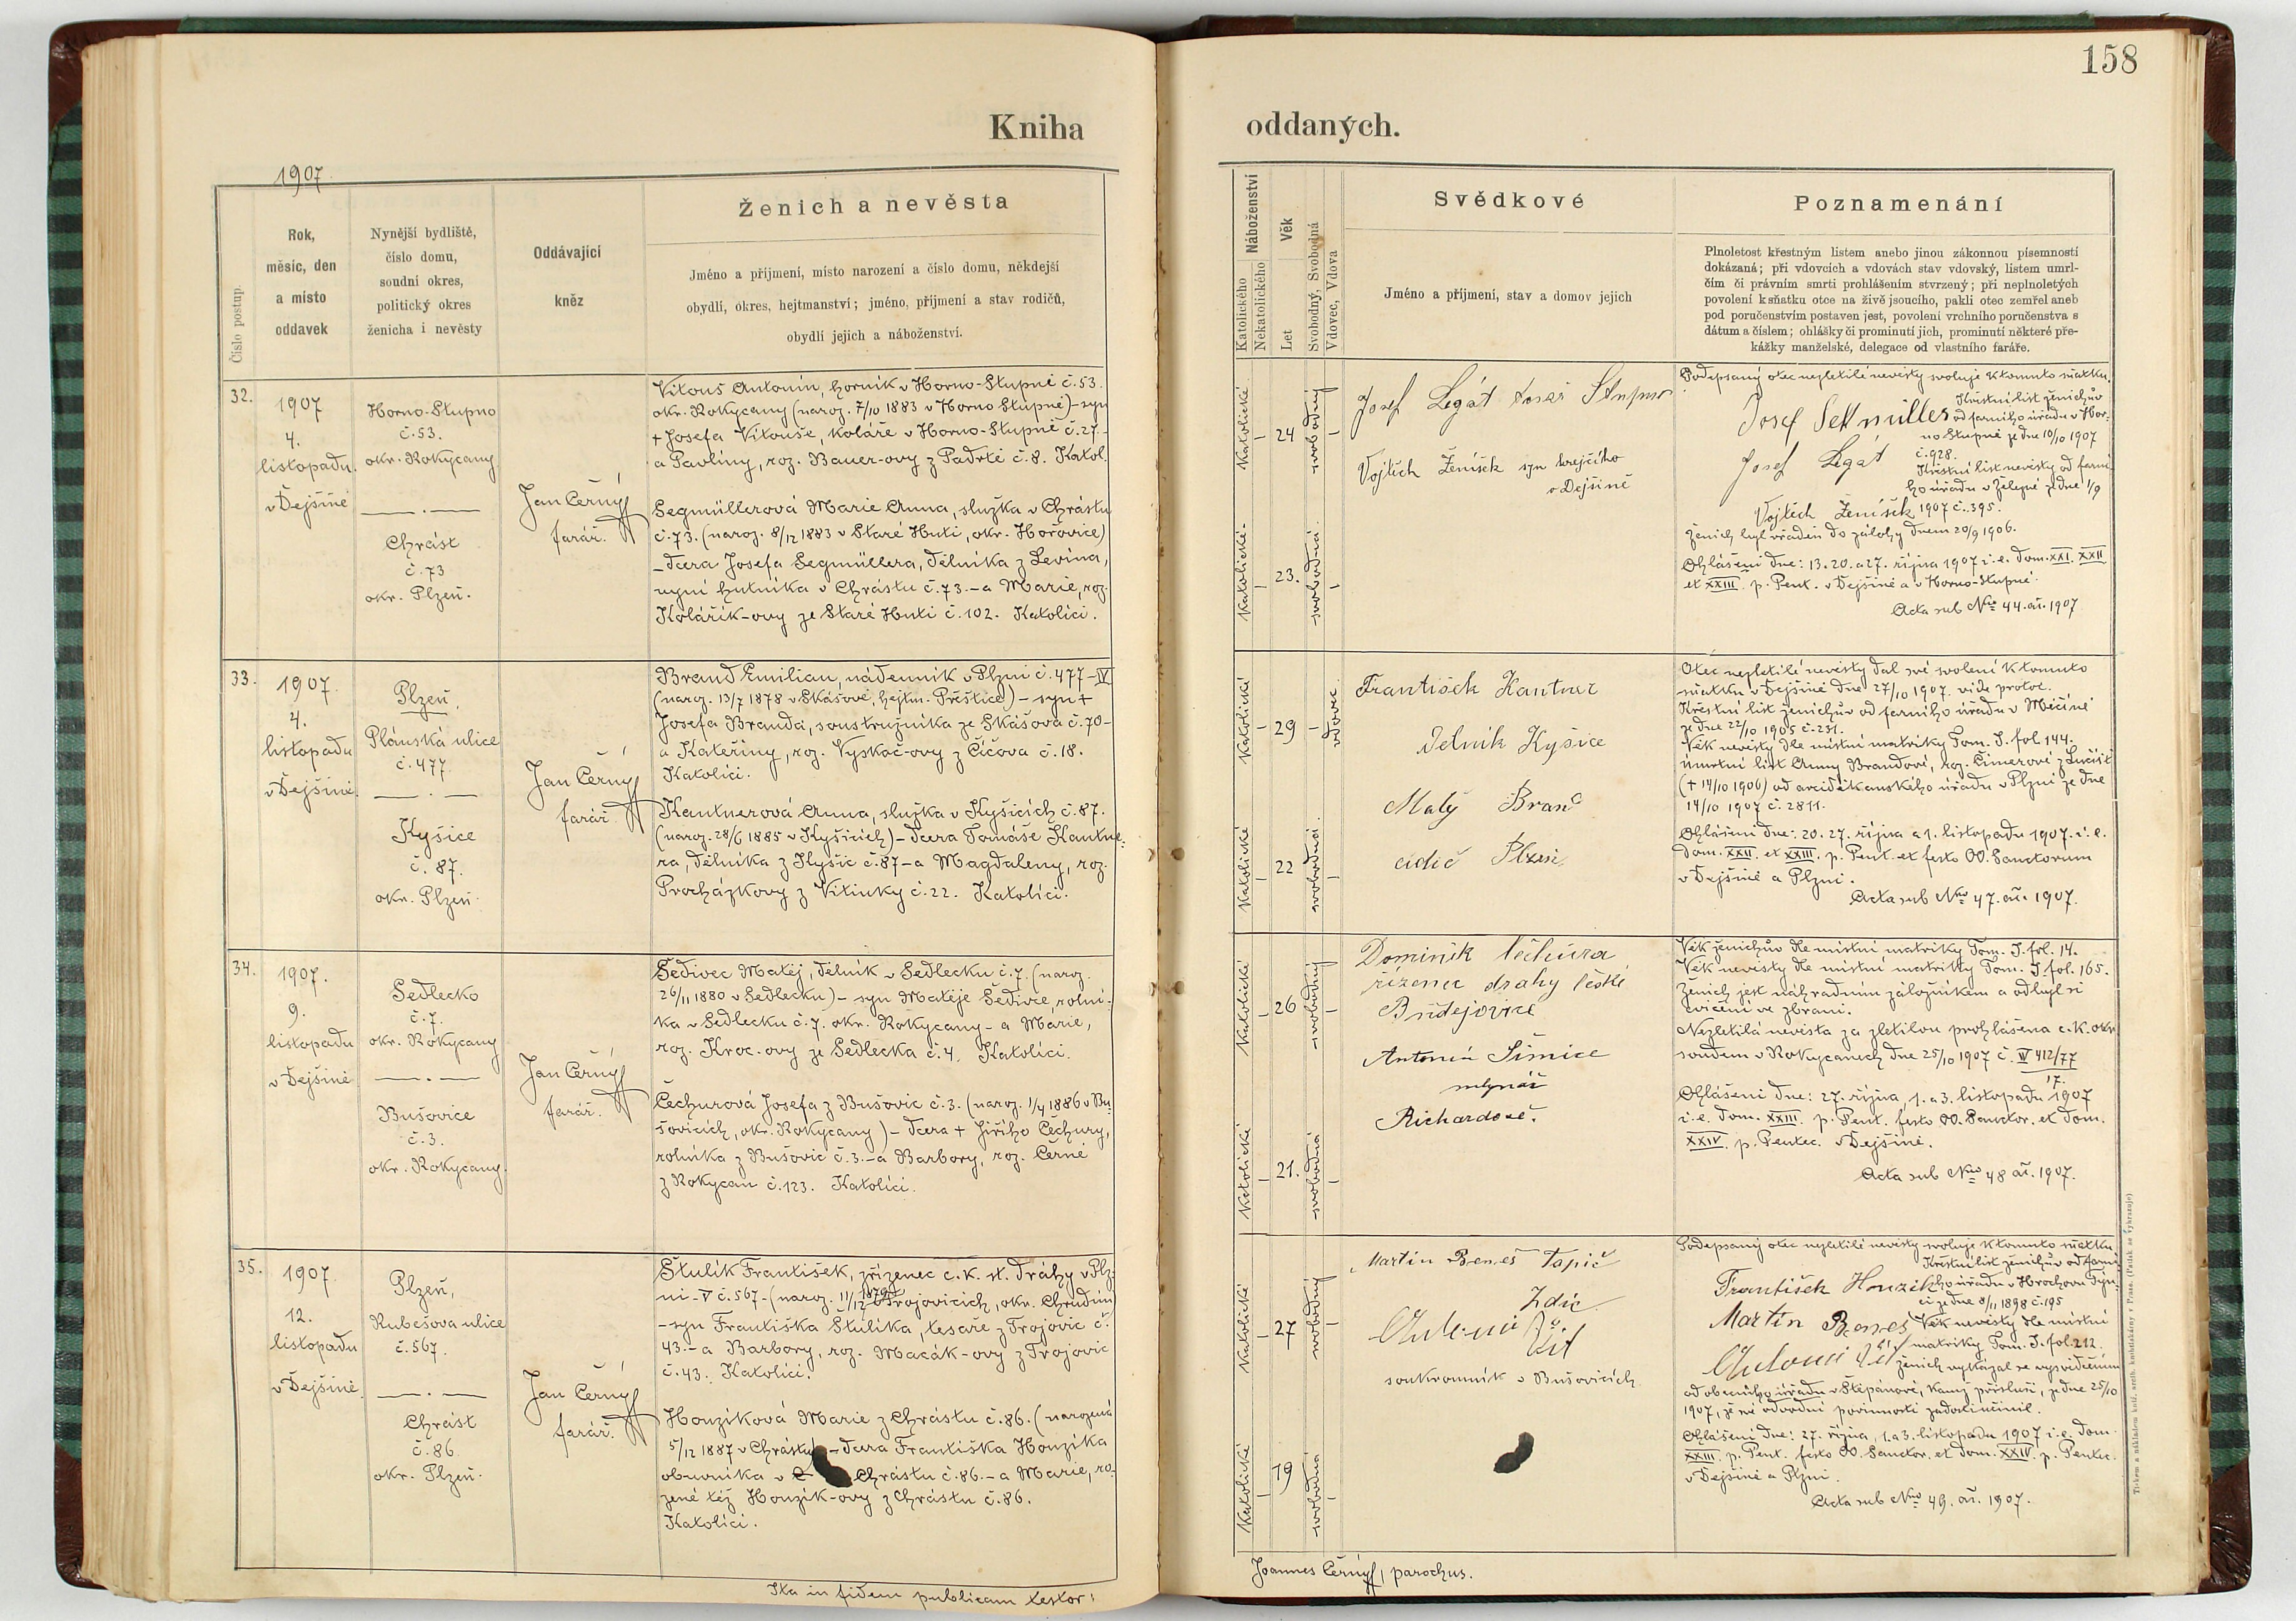 158
Kniha
oddaných.
1907
Číslo postup.
Rok,
měsíc, den
a místo
oddavek
Nynější bydliště,
číslo domu,
soudní okres,
politický okres
ženicha i nevěsty
Oddávající
kněz
Ženich a nevěsta
Jméno a příjmení, místo narození a číslo domu, někdejší
obydlí, okres, hejtmanství; jméno, příjmení a stav rodičů,
obydlí jejich a náboženství.
Náboženství
Katolického
Nekatolického
Věk
Let
Svobodný, Svobodná
Vdovec, Vdova
Svědkové
Jméno a příjmení, stav a domov jejich
Poznamenání
Plnoletost křestným listem anebo jinou zákonnou písemností
dokázaná; při vdovcích a vdovách stav vdovský, listem umrl-
čím či právním smrti prohlášením stvrzený; při neplnoletých
povolení k sňatku otce na živě jsoucího, pakli otec zemřel aneb
pod poručenstvím postaven jest, povolení vrchního poručenstva s
dátum a číslem; ohlášky či prominutí jich, prominutí některé pře-
kážky manželské, delegace od vlastního faráře.
32.
1907
4.
listopadu
v Dejšině
Horno-Stupno
č. 53.
okr. Rokycany
Chrást
č. 73
okr. Plzeň.
Jan Černý
farář.
Vitouš Antonín, horník v Horno-Stupně č. 53.
okr. Rokycany (naroz. 7/10 1883 v Horno Stupně) - syn
+ Josefa Vitouše, koláře v Horno-Stupně č. 27. -
a Pavlíny, roz. Bauer-ovy z Padrtě č. 8. Katol.
Segmüllerová Marie Anna, služka v Chrástu
č. 73. (naroz. 8/12 1883 v Staré Huti, okr. Hořovice)
- dcera Josefa Segmüllera, dělníka z Levína,
nyní hutníka v Chrástu č. 73. - a Marie, roz.
Kolářík-ovy ze Staré Huti č. 102. Katolíci.
Katolické
24
svobodný
Katolické
23.
svobodná
Josef Legát tesař Stupno
Vojtěch Ženíšek syn krejčího
v Dejšině
Podepsaný otec nezletilé nevěsty svoluje k tomuto sňatku.
Křestní list ženichův
Josef Sekmüller od farního úřadu v Hor-
no Stupně ze dne 10/10 1907
Josef Legát č. 928.
Křestní list nevěsty od farní-
ho úřadu v Železné ze dne 1/9
Vojtěch Ženíšek 1907 č. 395.
Ženich byl vřaděn do zálohy dnem 20/9 1906.
Ohlášeni dne: 13. 20. a 27. října 1907 i. e. dom. XXI. XXII
et XXIII. p. Pent. v Dejšině a v Horno-Stupně.
Acta sub Nro 44. ai. 1907.
33.
1907.
4.
listopadu
v Dejšině.
Plzeň,
Plánská ulice
č. 477.
Kyšice
č. 87.
okr. Plzeň.
Jan Černý
farář.
Brand Emilian, nádenník v Plzni č. 477 - IV
(naroz. 13/7 1878 v Skašově, hejtm. Přeštice) - syn +
Josefa Branda, soustružníka ze Skašova č. 70 -
a Kateřiny, roz. Vyskoč-ovy z Čičova č. 18.
Katolíci.
Kantnerová Anna, služka v Kyšicích č. 87.
(naroz. 28/6 1885 v Kyšicích) - dcera Tomáše Kantne-
ra, dělníka z Kyšic č. 87 - a Magdaleny, roz.
Procházkovy z Vitinky č. 22. Katolíci.
Katolické
29
vdovec
Katolické
22
svobodná.
František Kantner
Dělník Kyšice
Matěj Brand
Plzni
Otec nezletilé nevěsty dal své svolení k tomuto
sňatku v Dejšině dne 27/10 1907. vide protoc.
Křestní list ženichův od farního úřadu v Měčíně
ze dne 22/10 1905 č. 251.
Věk nevěsty dle místní matriky Tom. I. fol. 144.
Úmrtní list Anny Brandové,
(+ 14/10 1906) od arciděkanského úřadu v Plzni ze dne
14/10 1907 č. 2811.
Ohlášeni dne: 20. 27. října a 1. listopadu 1907. i. e.
dom. XXII. et XXIII. p. Pent. et festo OO. Sanctorum
v Dejšině a Plzni.
Acta sub Nro 47. ai. 1907.
34.
1907.
9.
listopadu
v Dejšině
Sedlecko
č. 7.
okr. Rokycany
Bušovice
č. 3.
okr. Rokycany.
Jan Černý
farář.
Šedivec Matěj, dělník v Sedlecku č. 7. (naroz.
26/11 1880 v Sedlecku) - syn Matěje Šedivce, rolní-
ka v Sedlecku č. 7. okr. Rokycany - a Marie,
roz. Kroc-ovy ze Sedlecka č. 4. Katolíci.
Čechurová Josefa z Bušovic č. 3. (naroz. 1/4 1886 v Bu-
šovicích, okr. Rokycany) - dcera + Jiřího Čechury,
rolníka z Bušovic č. 3. - a Barbory, roz. Černé
z Rokycan č. 123. Katolíci.
Katolické
26
svobodný
Katolické
21.
svobodná
Dominik Čechura
řízenec dráhy České
Budějovice
Antonín Šimice
mlynář
Richardově.
Věk ženichův dle místní matriky Tom. I. fol. 14.
Věk nevěsty dle místní matriky Tom. I. fol. 165.
Ženich jest náhradním záložníkem a odbyl si
cvičení ve zbrani.
Nezletilá nevěsta za zletilou prohlášena c. k. okr.
soudem v Rokycanech dne 25/10 1907 č. IV 412/77
17.
Ohlášeni dne: 27. října, 1. a 3. listopadu 1907
i. e. dom. XXIII. p. Pent. festo OO. Sanctor. et dom.
XXIV. p. Pentec. v Dejšině.
Acta sub Nro 48 ai. 1907.
35.
1907
12.
listopadu
v Dejšině.
Plzeň,
Rubešova ulice
č. 567.
Chrást
č. 86.
okr. Plzeň.
Jan Černý
farář.
Štulík František, zřízenec c. k. st. dráhy v Plz-
ni - V č. 567 - (naroz. 11/12 1879 v Trojovicích, okr. Chrudim)
- syn Františka Štulíka, tesaře z Trojovic č.
43. - a Barbory, roz. Macák-ovy z Trojovic
č. 43. Katolíci.
Honzíková Marie z Chrástu č. 86. (narozená
5/12 1887 v Chrástu) - dcera Františka Honzíka
obuvníka v Chrástu č. 86. - a Marie, ro-
zené též Honzík-ovy z Chrástu č. 86.
Katolíci.
Katolické
27
svobodný
Katolické
19
svobodná
Martin Beneš Topič
Zdic
Antonín Vít
soukromník v Bušovicích
Podepsaný otec nezletilé nevěsty svoluje k tomuto sňatku
Křestní list ženichův od farní-
František Honzík ho úřadu v Hrochovu Týn-
ci ze dne 8/11 1898 č. 195
Martin Beneš Věk nevěsty dle místní
matriky Tom. I. fol. 212.
Antonín Vít Ženich vykázal se vysvědčením
od obecního úřadu v Štěpánově, kamž přísluší, ze dne 25/10
1907, že své odvodní povinnosti zadostiučinil.
Ohlášeni dne: 27. října, 1. a 3. listopadu 1907 i. e. dom.
XXIII. p. Pent. festo OO. Sanctor. et dom. XXIV. p. Pentec.
v Dejšině a Plzni.
Acta sub Nro 49. ai. 1907.
Ita in fidem publicam testor:
Joannes Černý, parochus.